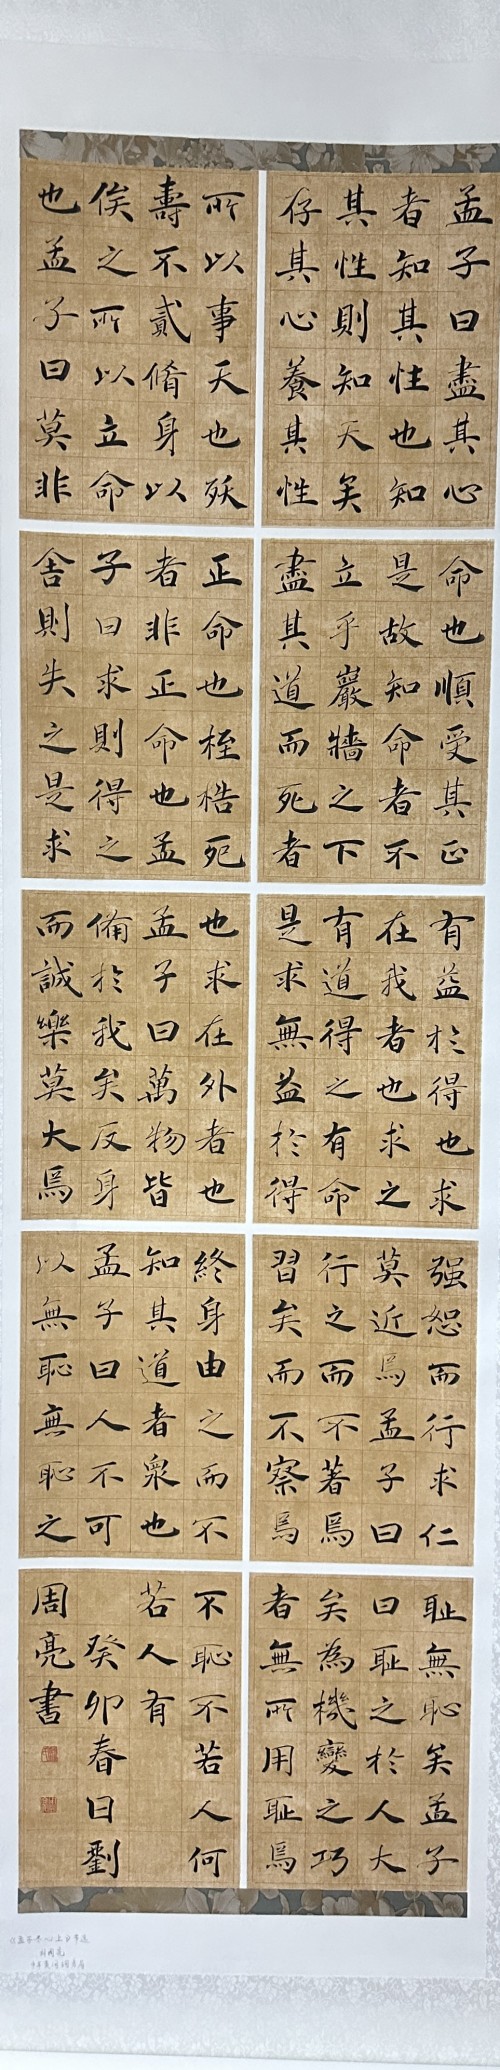 孟子曰盡其心
者知其性也知
其性則知天矣
存其心養其性
所以事天也殀
壽不貳脩身以
俟之所以立命
也孟子曰莫非
命也順受其正
是故知命者不
立乎巖牆之下
盡其道而死者
正命也桎梏死
者非正命也孟
子曰求則得之
舍則失之是求
有益於得也求
在我者也求之
有道得之有命
是求無益於得
也求在外者也
孟子曰萬物皆
備於我矣反身
而誠樂莫大焉
强恕而行求仁
莫近焉孟子曰
行之而不著焉
習矣而不察焉
終身由之而不
知其道者衆也
孟子曰人不可
以無恥無恥之
耻無恥矣孟子
曰耻之於人大
矣為機變之巧
者無所用耻焉
不恥不若人何
若人有
癸卯春日劉
周亮書